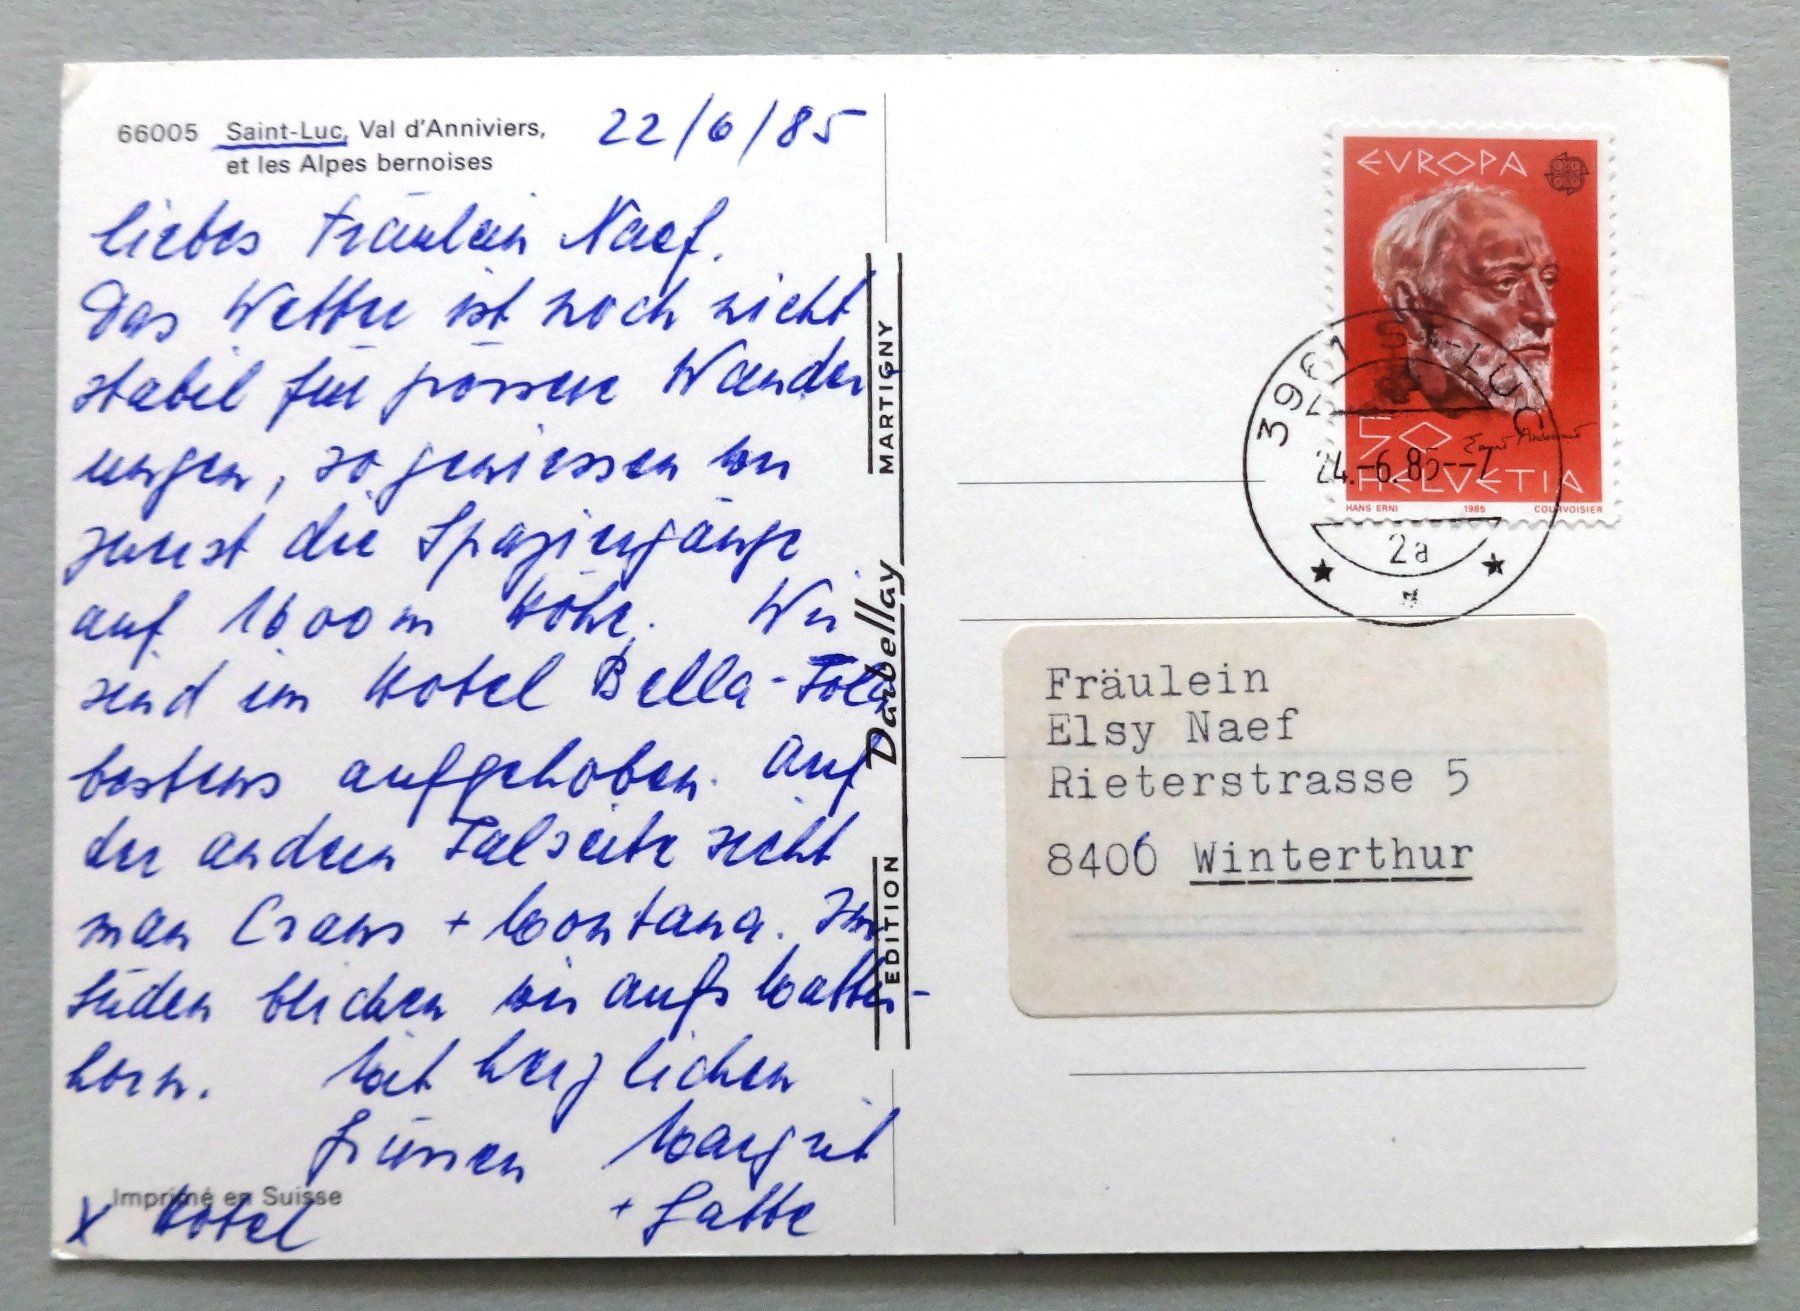 66005 Saint-Luc, Val d'Anniviers,
et les Alpes bernoises
22/6/85
liebes Fräulein Naef.
Das Wetter ist noch nicht
stabil für grössere Wander
ungen, so geniessen wir
zuerst die Spaziergänge
auf 1600 m Höhe. Wir
sind im Hotel Bella-Tola
bestens aufgehoben. Auf
der andern Talseite sieht
man Crans + Montana. Im
Süden blicken wir aufs Matter-
horn. Mit herzlichen
Grüssen Margrit
+ Gatte
x Hotel
Imprimé en Suisse
EDITION Darbellay MARTIGNY
EVROPA
50
HELVETIA
HANS ERNI 1985 COURVOISIER
3961 ST-LUC
24.-6.85--7
2a
Fräulein
Elsy Naef
Rieterstrasse 5
8406 Winterthur